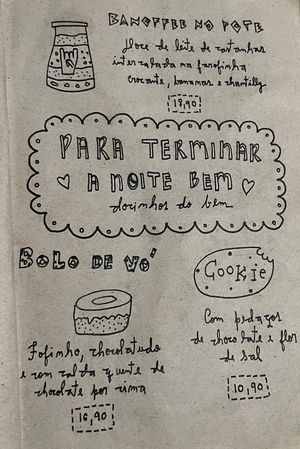 BANOFFEE NO POTE
doce de leite de castanhas
intercalada na farofinha
crocante, bananas e chantilly
18,90
PARA TERMINAR
A NOITE BEM
docinhos do bem
BOLO DE VÓ
Fofinho, chocolatudo
e com calda quente de
chocolate por cima
16,90
COOKIE
Com pedaços
de chocolate e flor
de sal
10,90